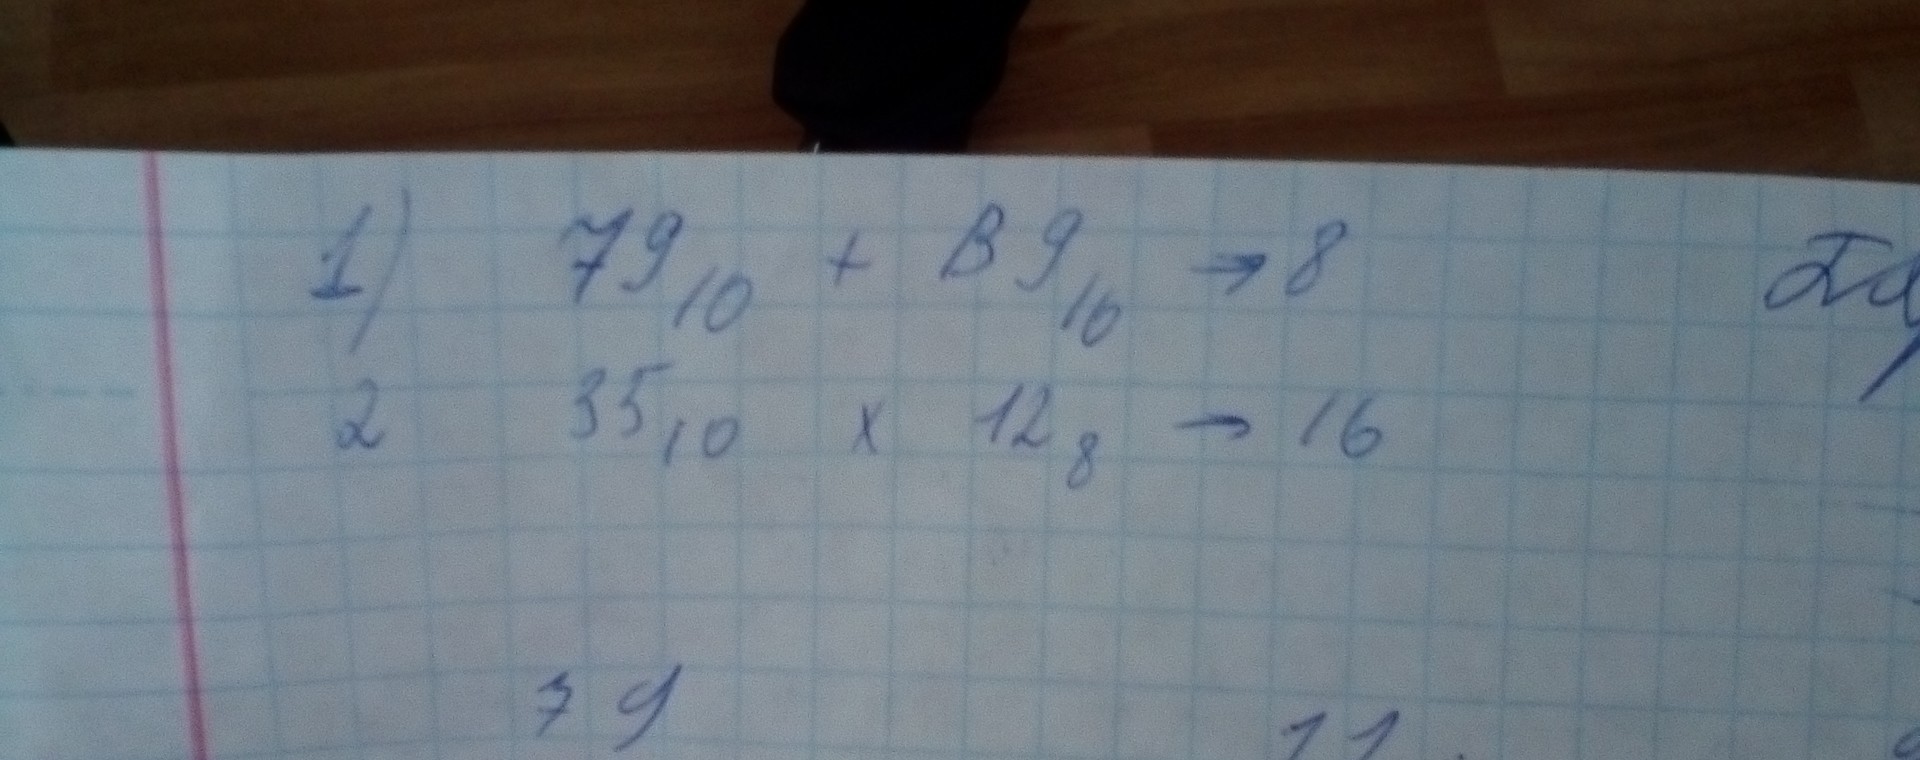 1) 79₁₀ + B9₁₆ → 8
2 35₁₀ x 12₈ → 16
79 11